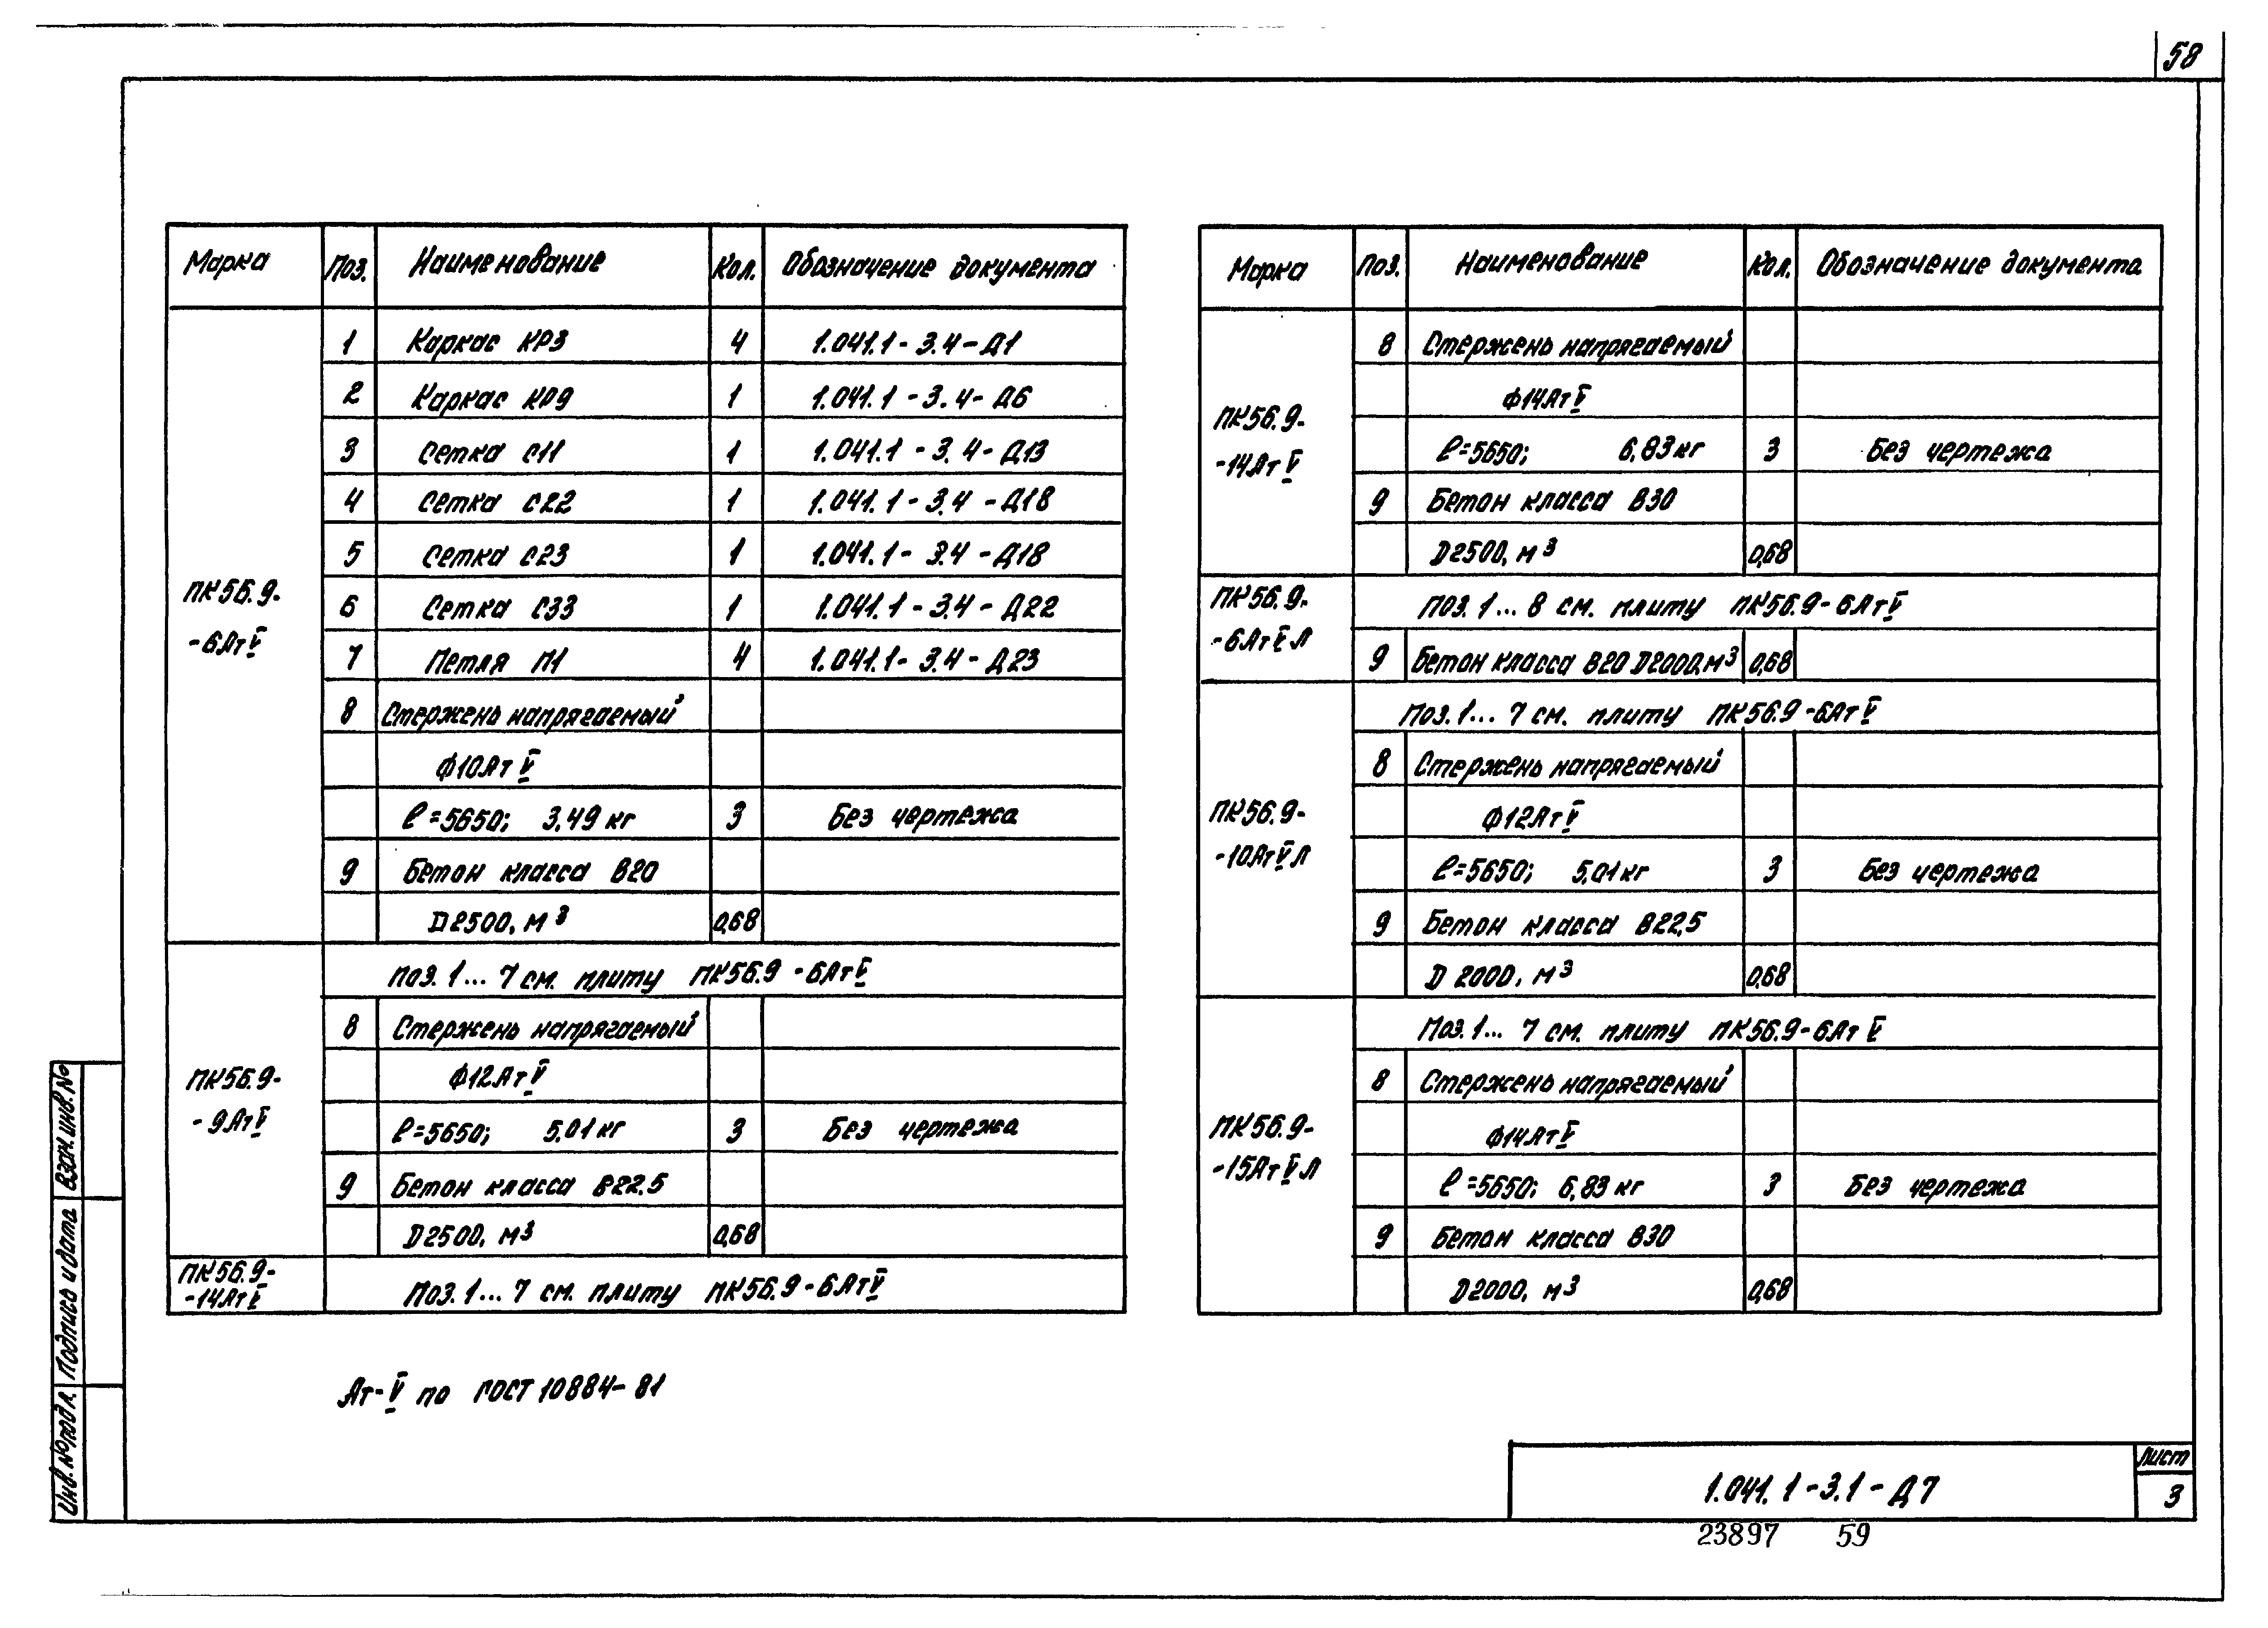 58
Марка Поз. Наименование Кол. Обозначение документа
1 Каркас КР3 4 1.041.1-3.4-Д1
2 Каркас КР9 1 1.041.1-3.4-Д6
3 Сетка С11 1 1.041.1-3.4-Д13
4 Сетка С22 1 1.041.1-3.4-Д18
5 Сетка С23 1 1.041.1-3.4-Д18
ПК56.9-
6 Сетка С33 1 1.041.1-3.4-Д22
-6АтV
7 Петля П1 4 1.041.1-3.4-Д23
8 Стержень напрягаемый
Ф10АтV
ℓ=5650; 3,49 кг 3 Без чертежа
9 Бетон класса В20
D2500, м3 0,68
Поз. 1... 7 см. плиту ПК56.9-6АтV
8 Стержень напрягаемый
ПК56.9-
Ф12АтV
-9АтV
ℓ=5650; 5,01 кг 3 Без чертежа
9 Бетон класса В22,5
D2500, м3 0,68
ПК56.9-
-14АтV
Поз. 1... 7 см. плиту ПК56.9-6АтV
Марка Поз. Наименование Кол. Обозначение документа
8 Стержень напрягаемый
Ф14АтV
ПК56.9-
-14АтV
ℓ=5650; 6,83 кг 3 Без чертежа
9 Бетон класса В30
D2500, м3 0,68
ПК56.9-
Поз. 1... 8 см. плиту ПК56.9-6АтV
-6АтVЛ
9 Бетон класса В20 D2000, м3 0,68
Поз. 1... 7 см. плиту ПК56.9-6АтV
8 Стержень напрягаемый
ПК56.9-
Ф12АтV
-10АтVЛ
ℓ=5650; 5,01 кг 3 Без чертежа
9 Бетон класса В22,5
D 2000, м3 0,68
Поз. 1... 7 см. плиту ПК56.9-6АтV
8 Стержень напрягаемый
ПК56.9-
Ф14АтV
-15АтVЛ
ℓ=5650; 6,83 кг 3 Без чертежа
9 Бетон класса В30
D2000, м3 0,68
Ат-V по ГОСТ 10884-81
Взам. инв. №
Подпись и дата
Инв. № подл.
1.041.1-3.1-Д7
Лист
3
23897 59